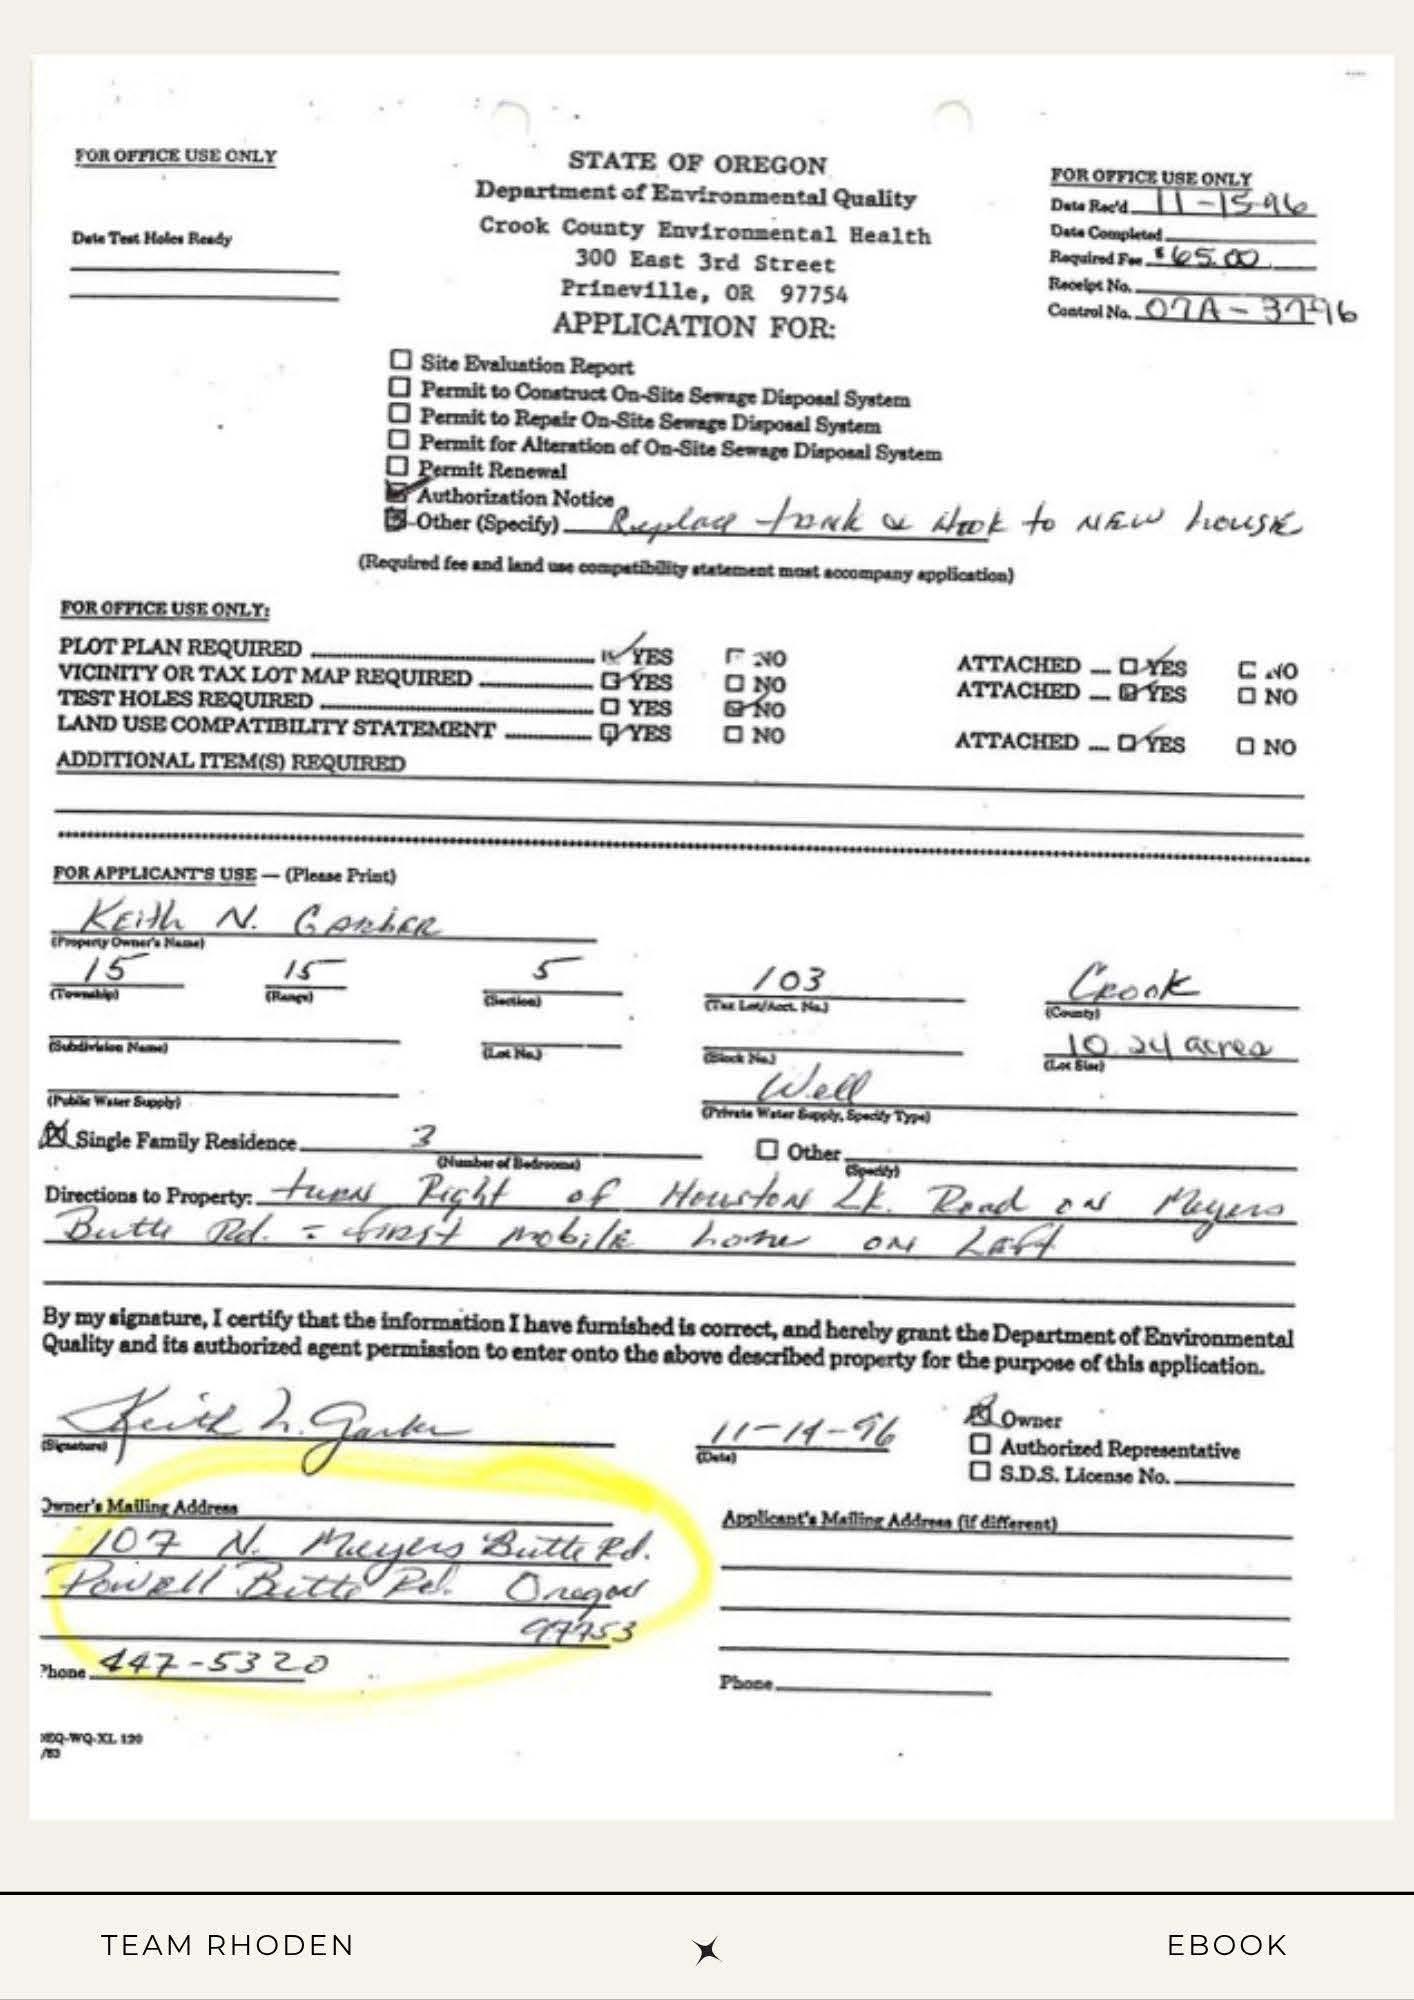 FOR OFFICE USE ONLY
Date Test Holes Ready
STATE OF OREGON
Department of Environmental Quality
Crook County Environmental Health
300 East 3rd Street
Prineville, OR 97754
APPLICATION FOR:
FOR OFFICE USE ONLY
Date Rec'd 11-15-96
Date Completed
Required Fee $65.00
Receipt No.
Control No. 07A-3796
Site Evaluation Report
Permit to Construct On-Site Sewage Disposal System
Permit to Repair On-Site Sewage Disposal System
Permit for Alteration of On-Site Sewage Disposal System
Permit Renewal
Authorization Notice
Other (Specify) Replace tank & Hook to NEW house
(Required fee and land use compatibility statement most accompany application)
FOR OFFICE USE ONLY:
PLOT PLAN REQUIRED YES NO ATTACHED .... YES NO
VICINITY OR TAX LOT MAP REQUIRED YES NO ATTACHED .... YES NO
TEST HOLES REQUIRED YES NO
LAND USE COMPATIBILITY STATEMENT YES NO ATTACHED .... YES NO
ADDITIONAL ITEM(S) REQUIRED
FOR APPLICANT'S USE — (Please Print)
Keith N. Garber
(Property Owner's Name)
15 15 5 103 Crook
(Township) (Range) (Section) (Tax Lot/Acct. No.) (County)
10.24 acres
(Subdivision Name) (Lot No.) (Block No.) (Lot Size)
Well
(Public Water Supply) (Private Water Supply, Specify Type)
Single Family Residence 3 Other
(Number of Bedrooms) (Specify)
Directions to Property: turn Right of Houston Lk. Road on Meyers
Butte Rd. = first mobile home on Left
By my signature, I certify that the information I have furnished is correct, and hereby grant the Department of Environmental
Quality and its authorized agent permission to enter onto the above described property for the purpose of this application.
Keith N. Garber 11-14-96
(Signature) (Date)
Owner
Authorized Representative
S.D.S. License No.
Owner's Mailing Address
107 N. Meyers Butte Rd.
Powell Butte Rd. Oregon
97753
Phone 447-5320
Applicant's Mailing Address (if different)
Phone
DEQ-WQ-XL 120
/83
TEAM RHODEN
EBOOK